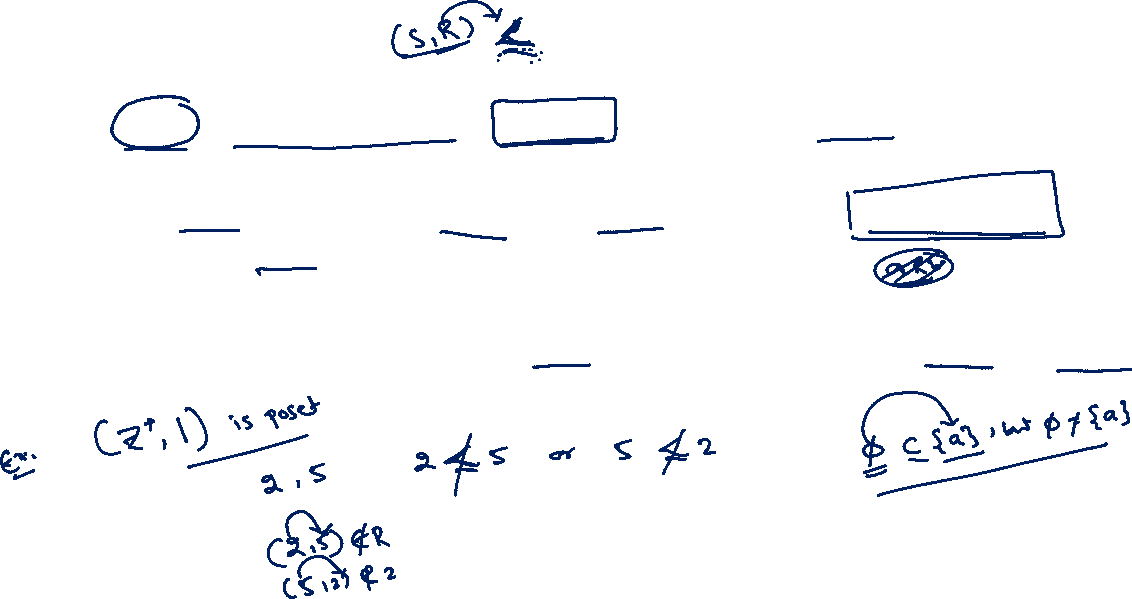 (S,R) ≤
Ex. (Z⁺, |) is poset
2, 5
2 ≰ 5 or 5 ≰ 2
(2,5) ∉ R
(5,2) ∉ 2
φ ⊆ {a}, but φ ≠ {a}